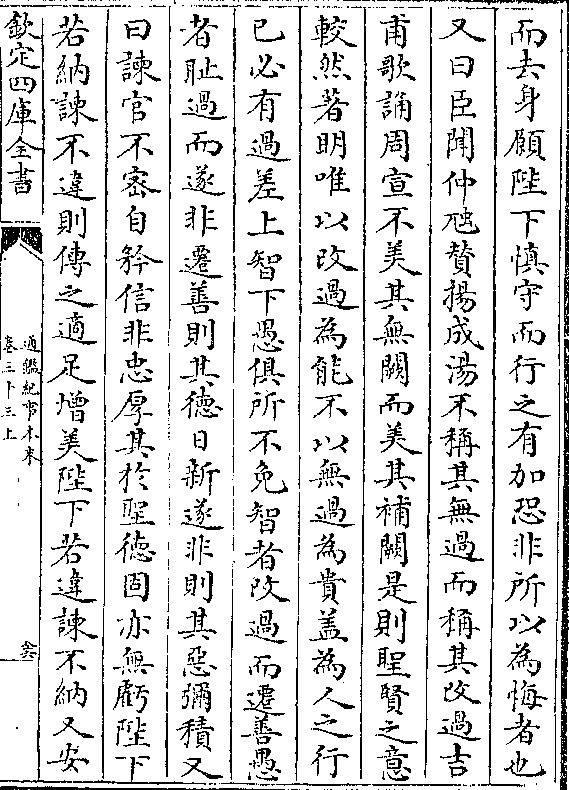 而去身願陛下慎守而行之有加恐非所以為悔者也
又曰臣聞仲虺贊揚成湯不稱其無過而稱其改過吉
甫歌誦周宣不美其無闕而美其補闕是則聖賢之意
較然著明唯以改過為能不以無過為貴盖為人之行
已必有過差上智下愚俱所不免智者改過而遷善愚
者耻過而遂非遷善則其德日新遂非則其惡彌積又
曰諫官不密自矜信非忠厚其於聖德固亦無虧陛下
若納諫不違則傳之適足增美陛下若違諫不納又安
欽定四庫全書
通鑑紀事本末
卷三十三上